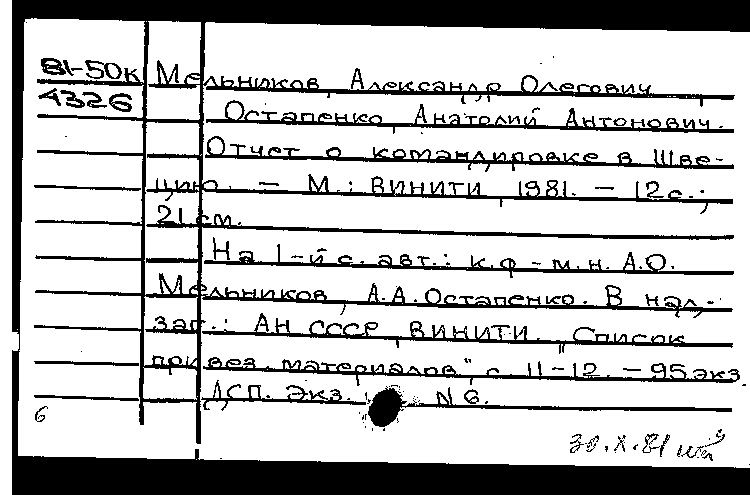 81-50к Мельников, Александр Олегович,
4326 Остапенко, Анатолий Антонович.
Отчет о командировке в Шве-
цию. — М.: ВИНИТИ, 1981. — 12 с.;
21 см.
На 1-й с. авт.: к.ф-м.н. А.О.
Мельников, А.А. Остапенко. В надз
заг.: АН СССР, ВИНИТИ. "Список
привез. материалов", с. 11-12. — 95 экз.
ДСП. Экз. N 6.
6
30.X.81